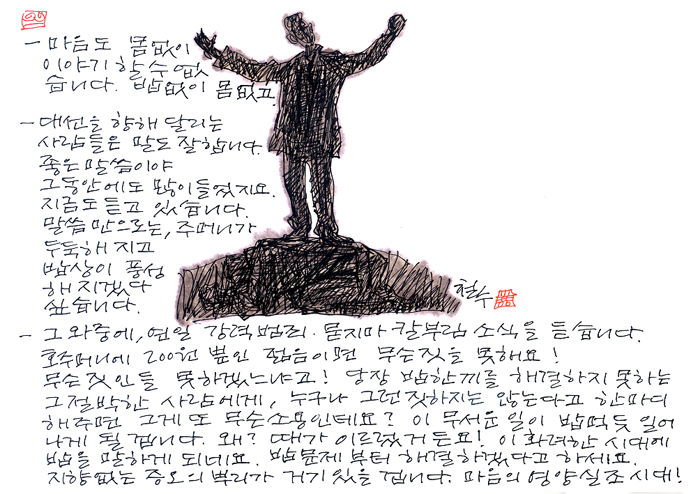 - 마음도 몸없이
이야기 할 수 없
습니다. 밥없이 몸없고.
- 대선을 향해 달리는
사람들은 말도 잘합니다.
좋은 말씀이야
그동안에도 많이 들었지요.
지금도 듣고 있습니다.
말씀만으로는, 주머니가
두둑해지고
밥상이 풍성
해지겠다
싶습니다.
철수
- 그 와중에, 연일 강력범죄·묻지마 칼부림 소식을 듣습니다.
호주머니에 200원 뿐인 젊음이면 무슨짓을 못해요!
무슨 짓인들 못하겠느냐고! 당장 밥한끼를 해결하지 못하는
그 절박한 사람에게, 누구나 그런 짓하지는 않는다고 한마디
해주면 그게 또 무슨소용인데요? 이 무서운 일이 밥먹듯 일어
나게 될 겁니다. 왜? 때가 이르렀거든요! 이 화려한 시대에
밥을 말하게 되네요. 밥문제부터 해결하겠다고 하세요.
지향없는 증오의 뿌리가 거기 있을 겁니다. 마음의 영양실조 시대!